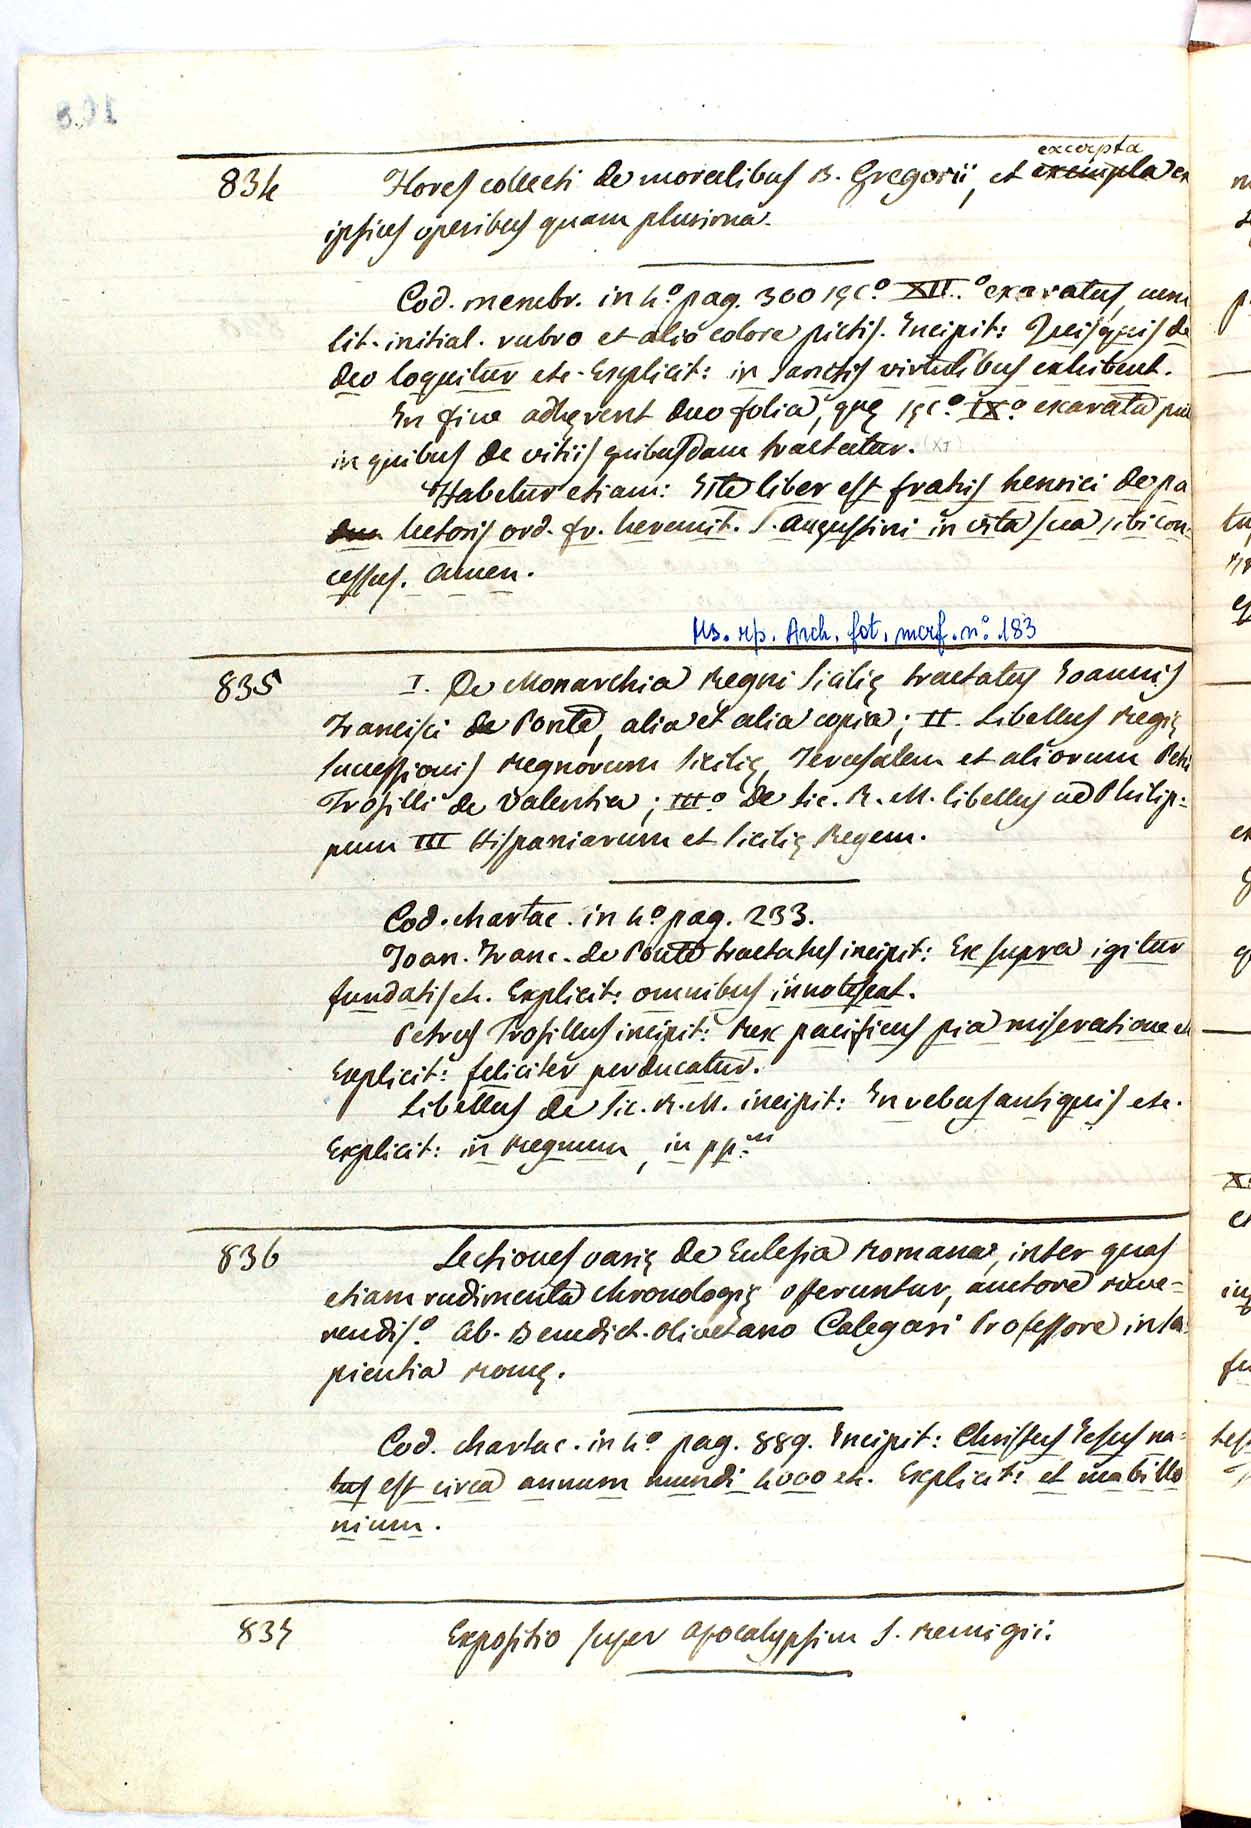 834 Flores collecti de moralibus B. Gregorii, et exempla ex
excerpta
ipsius operibus quam plurima.
Cod. membr. in 4º pag. 300 sęc.º XII.º exaratus, cum
lit. initial. rubro et alio colore pictis. Incipit: Quisquis de
deo loquitur etc. Explicit: in sanctis virtutibus exhibent.
In fine adhęrent duo folia, quę sęc.º IX.º exarata
in quibus de vitiis quibusdam tractatur. (XI)
Habetur etiam: Iste liber est fratris henrici de pa
dua lectoris ord. fr. heremit. S. Augustini in vita sua sibi con-
cessus. Amen.
Ms. rip. Arch. fot. mcrf. nº 183
835 I. De Monarchia Regni Sicilię tractatus Joannis
Francisci de Ponte, alia et alia copia; II. Libellus Regię
Successionis Regnorum Sicilię, Jerusalem et aliorum Petri
Trosilli de Valentia; III.º De Sic. R. M. libellus ad Philip-
pum III Hispaniarum et Sicilię Regem.
Cod. chartac. in 4º pag. 233.
Joan. Franc. de Ponte tractatus incipit: Ex supra igitur
fundatis etc. Explicit: omnibus innotescat.
Petrus Trosillus incipit: Rex pacificus pia miseratione etc
Explicit: feliciter perducatur.
Libellus de Sic. R. M. incipit: In rebus antiquis etc.
Explicit: in Regnum, in pp.
836 Lectiones varię de Ecclesia Romana, inter quas
etiam rudimenta chronologię offeruntur, auctore reve-
rendis.º Ab. Benedict. Olivetano Calegari Professore in Sa-
pientia Romę.
Cod. chartac. in 4º pag. 889. Incipit: Christus Jesus na-
tus est circa annum mundi 4000 etc. Explicit: et mabillo
nium.
837 Expositio super Apocalypsim S. Remigii.